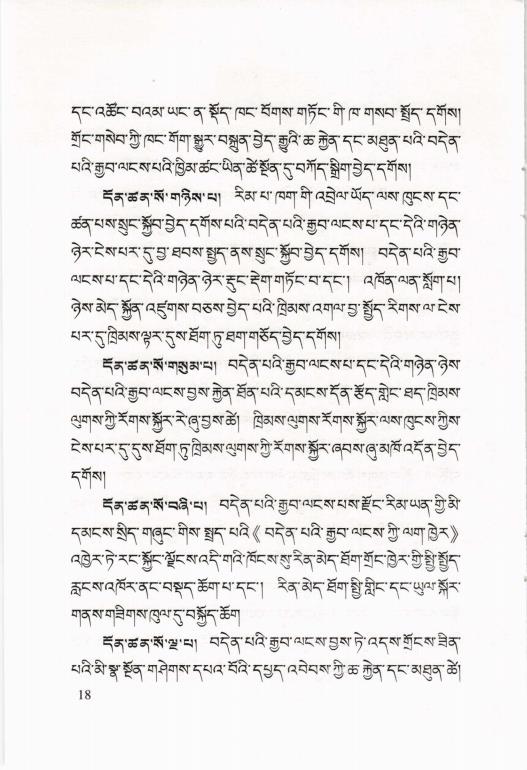 དང་འཚོང་བའམ་ཡང་ན་སྡོད་ཁང་བོགས་གཏོང་གི་ཁ་གསབ་སྤྲོད་དགོས།
གྲོང་གསེབ་ཀྱི་ཁང་གོག་སྒྱུར་བསྐྲུན་བྱེད་རྒྱུའི་ཆ་རྐྱེན་དང་མཐུན་པའི་བདེན་
པའི་རྒྱབ་ལངས་པའི་ཁྱིམ་ཚང་ཡིན་ཚེ་སྔོན་དུ་བཀོད་སྒྲིག་བྱེད་དགོས།
དོན་ཚན་སོ་གཉིས་པ། རིམ་པ་ཁག་གི་འབྲེལ་ཡོད་ལས་ཁུངས་དང་
ཚན་པས་སྲུང་སྐྱོབ་བྱེད་དགོས་པའི་བདེན་པའི་རྒྱབ་ལངས་པ་དང་དེའི་གཉེན་
ཉེར་ངེས་པར་དུ་བྱ་ཐབས་སྤྱད་ནས་སྲུང་སྐྱོབ་བྱེད་དགོས། བདེན་པའི་རྒྱབ་
ལངས་པ་དང་དེའི་གཉེན་ཉེར་རྡུང་རྡེག་གཏོང་བ་དང་། འཁོན་ལན་སློག་པ།
ཉེས་མེད་སྐྱོན་འཛུགས་བཅས་བྱེད་པའི་ཁྲིམས་འགལ་བྱ་སྤྱོད་རིགས་ལ་ངེས་
པར་དུ་ཁྲིམས་ལྟར་དུས་ཐོག་ཏུ་ཐག་གཅོད་བྱེད་དགོས།
དོན་ཚན་སོ་གསུམ་པ། བདེན་པའི་རྒྱབ་ལངས་པ་དང་དེའི་གཉེན་ཉེས་
བདེན་པའི་རྒྱབ་ལངས་བྱས་རྐྱེན་ཐོན་པའི་དམངས་དོན་རྩོད་གླེང་ཐད་ཁྲིམས་
ལུགས་ཀྱི་རོགས་སྐྱོར་རེ་ཞུ་བྱས་ཚེ། ཁྲིམས་ལུགས་རོགས་སྐྱོར་ལས་ཁུངས་ཀྱིས་
ངེས་པར་དུ་དུས་ཐོག་ཏུ་ཁྲིམས་ལུགས་ཀྱི་རོགས་སྐྱོར་ཞབས་ཞུ་མཁོ་འདོན་བྱེད་
དགོས།
དོན་ཚན་སོ་བཞི་པ། བདེན་པའི་རྒྱབ་ལངས་པས་རྫོང་རིམ་ཡན་གྱི་མི་
དམངས་སྲིད་གཞུང་གིས་སྤྲད་པའི《བདེན་པའི་རྒྱབ་ལངས་ཀྱི་ལག་ཁྱེར》
འཁྱེར་ཏེ་རང་སྐྱོང་ལྗོངས་འདི་གའི་ཁོངས་སུ་རིན་མེད་ཐོག་གྲོང་ཁྱེར་གྱི་སྤྱི་སྤྱོད་
རླངས་འཁོར་ནང་བསྡད་ཆོག་པ་དང་། རིན་མེད་ཐོག་སྤྱི་གླིང་དང་ཡུལ་སྐོར་
གནས་གཟིགས་ཁུལ་དུ་བསྐྱོད་ཆོག
དོན་ཚན་སོ་ལྔ་པ། བདེན་པའི་རྒྱབ་ལངས་བྱས་ཏེ་འདས་གྲོངས་ཟིན་
པའི་མི་སྣ་སྔོན་གཤེགས་དཔའ་བོའི་དཔྱད་འབེབས་ཀྱི་ཆ་རྐྱེན་དང་མཐུན་ཚེ།
18